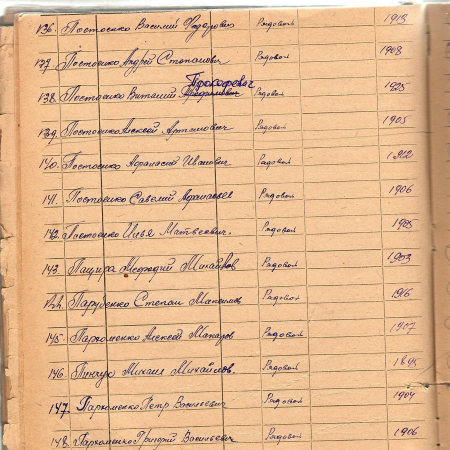 136. Постоенко Василий Федорович Рядовой 1918
137. Постоенко Андрей Степанович Рядовой 1908
Прокофевич
138. Постоенко Виталий Рядовой 1925
139. Постоенко Алексей Артамович Рядовой 1905
140. Постоенко Афанасий Иванович Рядовой 1902
141. Постоенко Савелий Афанасьев Рядовой 1906
142. Постоенко Илья Матвеевич. Рядовой 1905
143. Пацира Мефодий Михайлов Рядовой 1903
144. Парубенко Степан Максимов Рядовой 1916
145. Пархоменко Алексей Макаров Рядовой 1907
146. Пинчук Михаил Михайлов. Рядовой 1895
147. Пархоменко Петр Васильевич Рядовой 1904
148. Пархоменко Григорий Васильевич Рядовой 1906